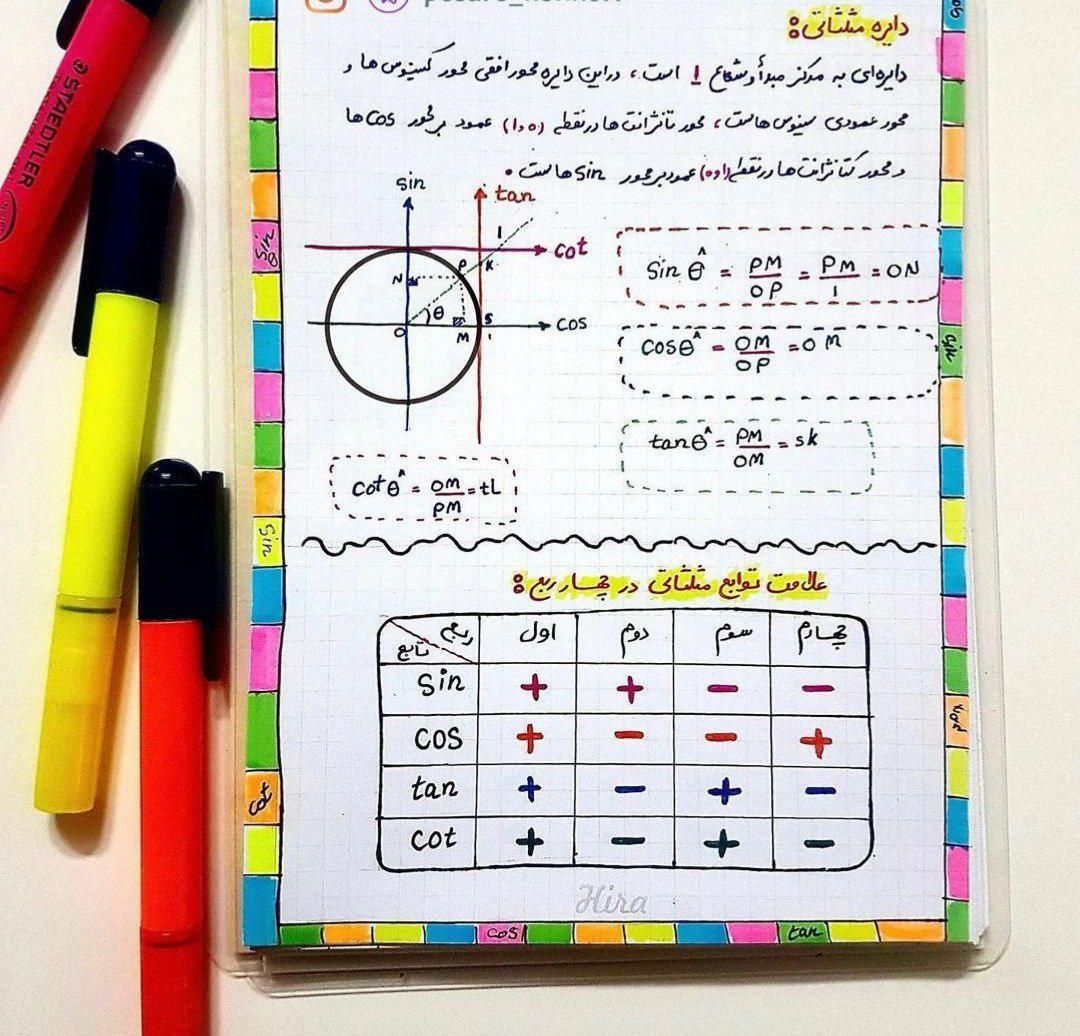 دایره مثلثاتی:
دایره‌ای به مرکز مبدأ و شعاع 1 است، در این دایره محور افقی محور کسینوس ها و
محور عمودی سینوس هاست، محور تانژانت ها در نقطه (1,0) عمود بر محور cos ها
و محور کتانژانت ها در نقطه (0,1) عمود بر محور sin ها است.
sin
tan
cot
cos
N
P
K
O
θ
M
S
1
Sin θ̂ = PM/OP = PM/1 = ON
cos θ̂ = OM/OP = OM
tan θ̂ = PM/OM = sk
cot θ̂ = OM/PM = tL
علامت توابع مثلثاتی در چهار ربع:
ربع تابع اول دوم سوم چهارم
Sin + + − −
cos + − − +
tan + − + −
cot + − + −
Hira
STAEDTLER
Sin
Sin
Cot
cos
tan